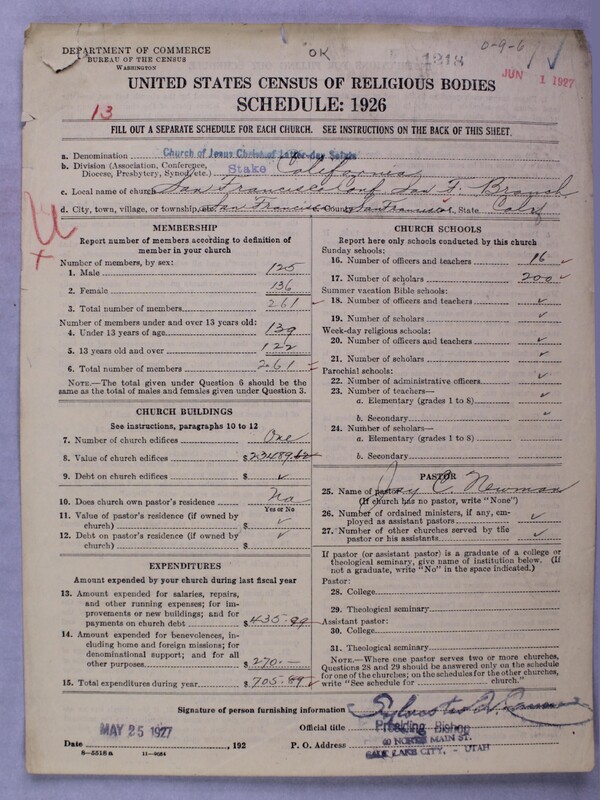 DEPARTMENT OF COMMERCE
BUREAU OF THE CENSUS
WASHINGTON
OK
1318
0-9-6
JUN 1 1927
UNITED STATES CENSUS OF RELIGIOUS BODIES
SCHEDULE: 1926
13
FILL OUT A SEPARATE SCHEDULE FOR EACH CHURCH. SEE INSTRUCTIONS ON THE BACK OF THIS SHEET.
a. Denomination Church of Jesus Christ of Latter-day Saints
b. Division (Association, Conference, Diocese, Presbytery, Synod, etc.) Stake California
c. Local name of church San Francisco Conf San F. Branch
d. City, town, village, or township, etc. San Francisco County San Francisco State Calif
MEMBERSHIP
Report number of members according to definition of member in your church
Number of members, by sex:
1. Male 125
2. Female 136
3. Total number of members 261
Number of members under and over 13 years old:
4. Under 13 years of age 139
5. 13 years old and over 122
6. Total number of members 261
NOTE.—The total given under Question 6 should be the same as the total of males and females given under Question 3.
CHURCH BUILDINGS
See instructions, paragraphs 10 to 12
7. Number of church edifices One
8. Value of church edifices $
9. Debt on church edifices $
10. Does church own pastor's residence No
Yes or No
11. Value of pastor's residence (if owned by church) $
12. Debt on pastor's residence (if owned by church) $
EXPENDITURES
Amount expended by your church during last fiscal year
13. Amount expended for salaries, repairs, and other running expenses; for improvements or new buildings; and for payments on church debt $ 435.89
14. Amount expended for benevolences, including home and foreign missions; for denominational support; and for all other purposes $ 270.—
15. Total expenditures during year $ 705.89
CHURCH SCHOOLS
Report here only schools conducted by this church
Sunday schools:
16. Number of officers and teachers 16
17. Number of scholars 200
Summer vacation Bible schools:
18. Number of officers and teachers
19. Number of scholars
Week-day religious schools:
20. Number of officers and teachers
21. Number of scholars
Parochial schools:
22. Number of administrative officers
23. Number of teachers—
a. Elementary (grades 1 to 8)
b. Secondary
24. Number of scholars—
a. Elementary (grades 1 to 8)
b. Secondary
PASTOR
25. Name of pastor Jay C. Newman
(If church has no pastor, write "None")
26. Number of ordained ministers, if any, employed as assistant pastors
27. Number of other churches served by the pastor or his assistants
If pastor (or assistant pastor) is a graduate of a college or theological seminary, give name of institution below. (If not a graduate, write "No" in the space indicated.)
Pastor:
28. College
29. Theological seminary
Assistant pastor:
30. College
31. Theological seminary
NOTE.—Where one pastor serves two or more churches, Questions 28 and 29 should be answered only on the schedule for one of the churches; on the schedules for the other churches, write "See schedule for church."
Signature of person furnishing information Sylvester Q. Cannon
Official title Presiding Bishop
MAY 25 1927
Date , 192 P. O. Address 40 NORTH MAIN ST.
SALT LAKE CITY, - UTAH
8—5518a 11—9084